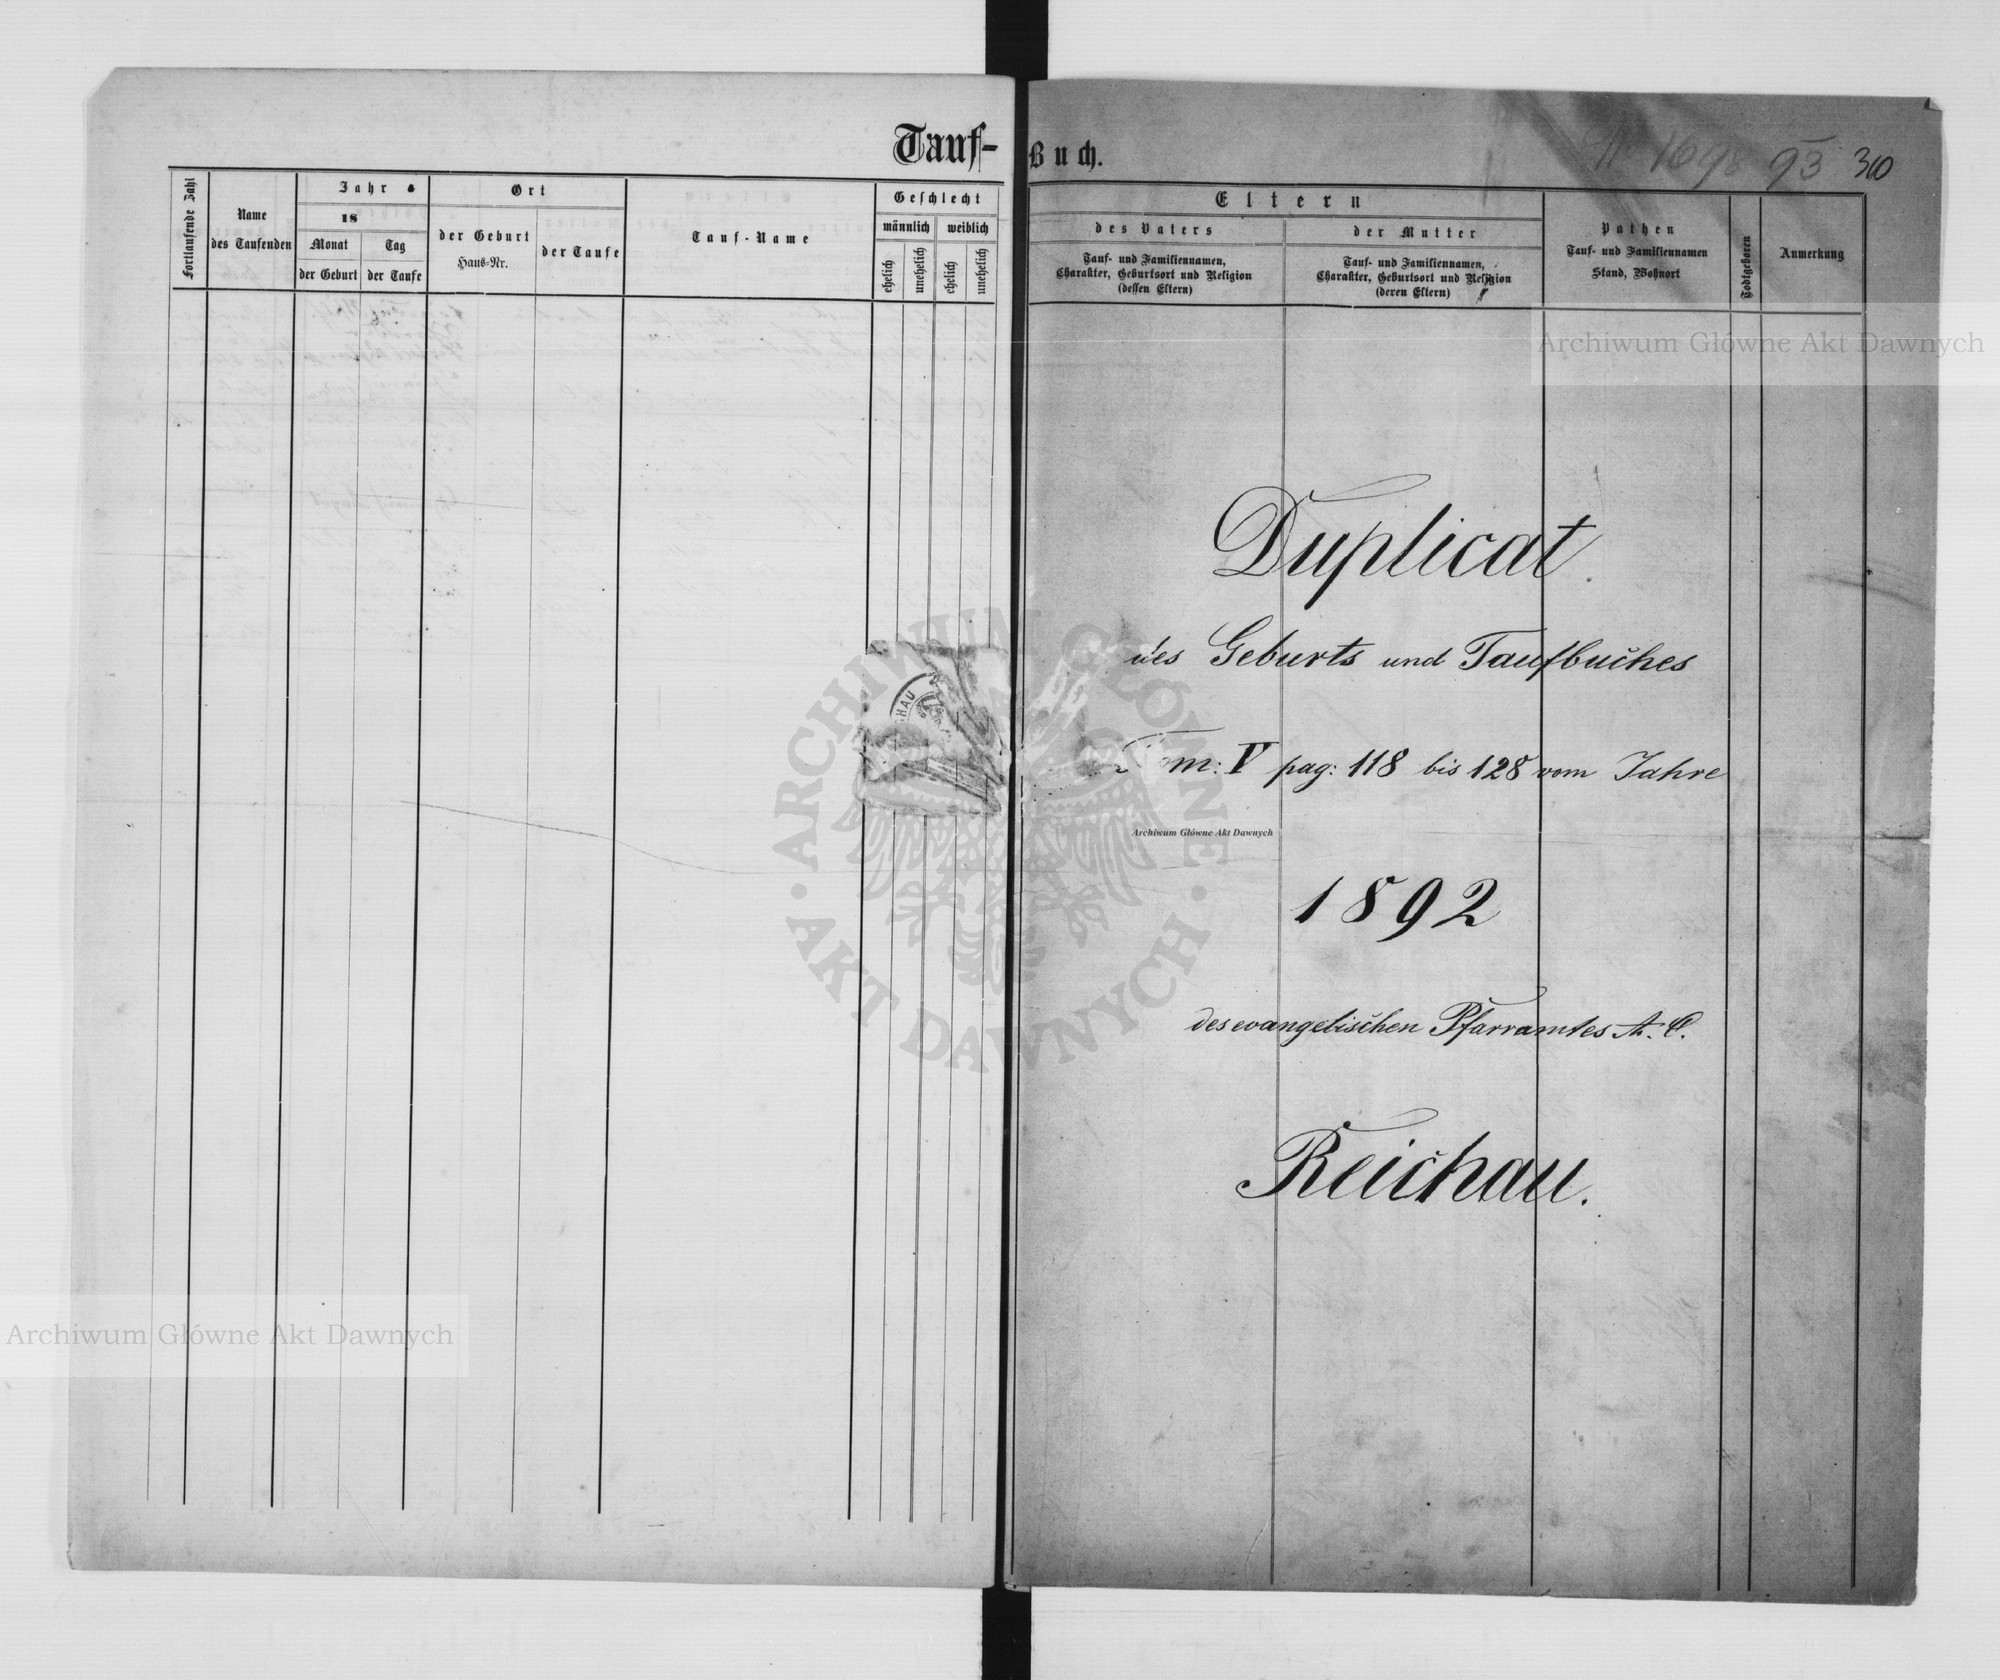 Tauf-
Buch.
93 310
Fortlaufende Zahl
Name
des Taufenden
Jahr
18
Monat
der Geburt
Tag
der Taufe
Ort
der Geburt
Haus-Nr.
der Taufe
Tauf-Name
Geschlecht
männlich
weiblich
ehelich
unehelich
ehelich
unehelich
Eltern
des Vaters
Tauf- und Familiennamen,
Charakter, Geburtsort und Religion
(dessen Eltern)
der Mutter
Tauf- und Familiennamen,
Charakter, Geburtsort und Religion
(deren Eltern)
Pathen
Tauf- und Familiennamen
Stand, Wohnort
Todtgeboren
Anmerkung
Archiwum Główne Akt Dawnych
Duplicat
des Geburts und Taufbuches
Tom: V pag: 118 bis 128 vom Jahre
Archiwum Główne Akt Dawnych
1892
des evangelischen Pfarramtes A. C.
Reichau.
ARCHIWUM GŁÓWNE
AKT DAWNYCH
Archiwum Główne Akt Dawnych